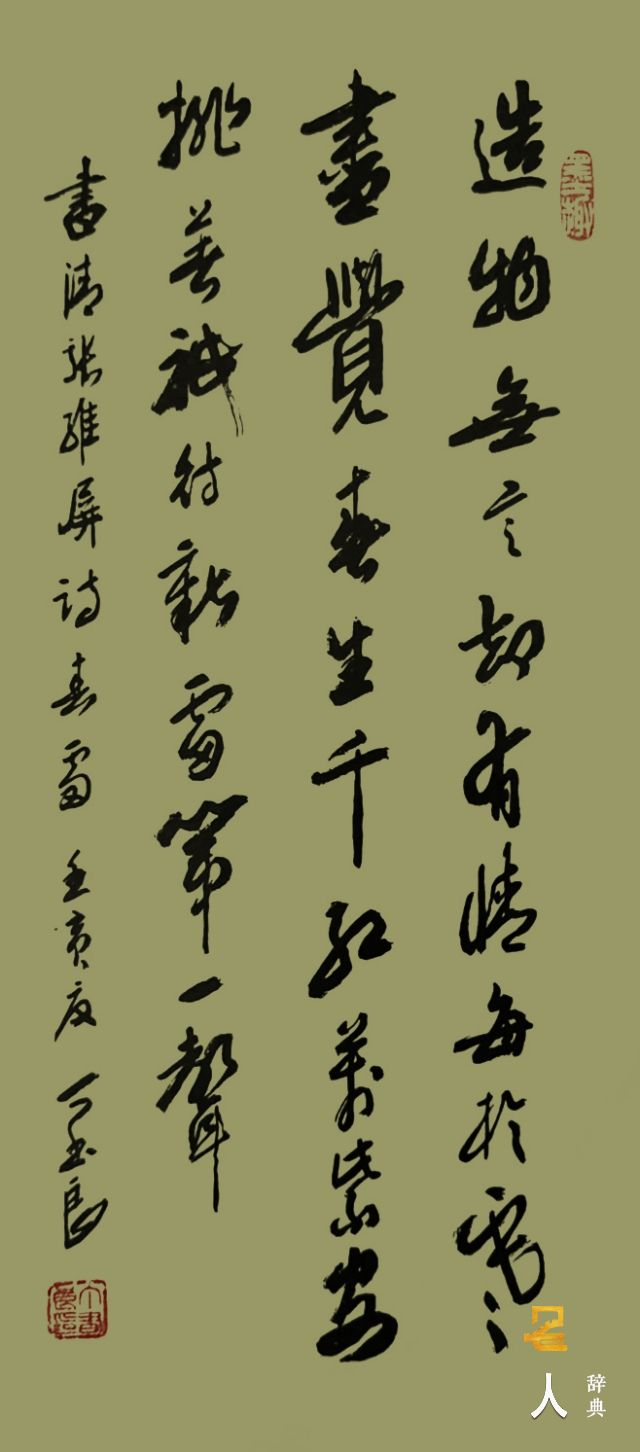 造物無言却有情每於寒
盡覺春生千紅萬紫安
排著祇待新雷第一聲
書清張維屏詩春雷 壬寅夏 玉良
人
辞典